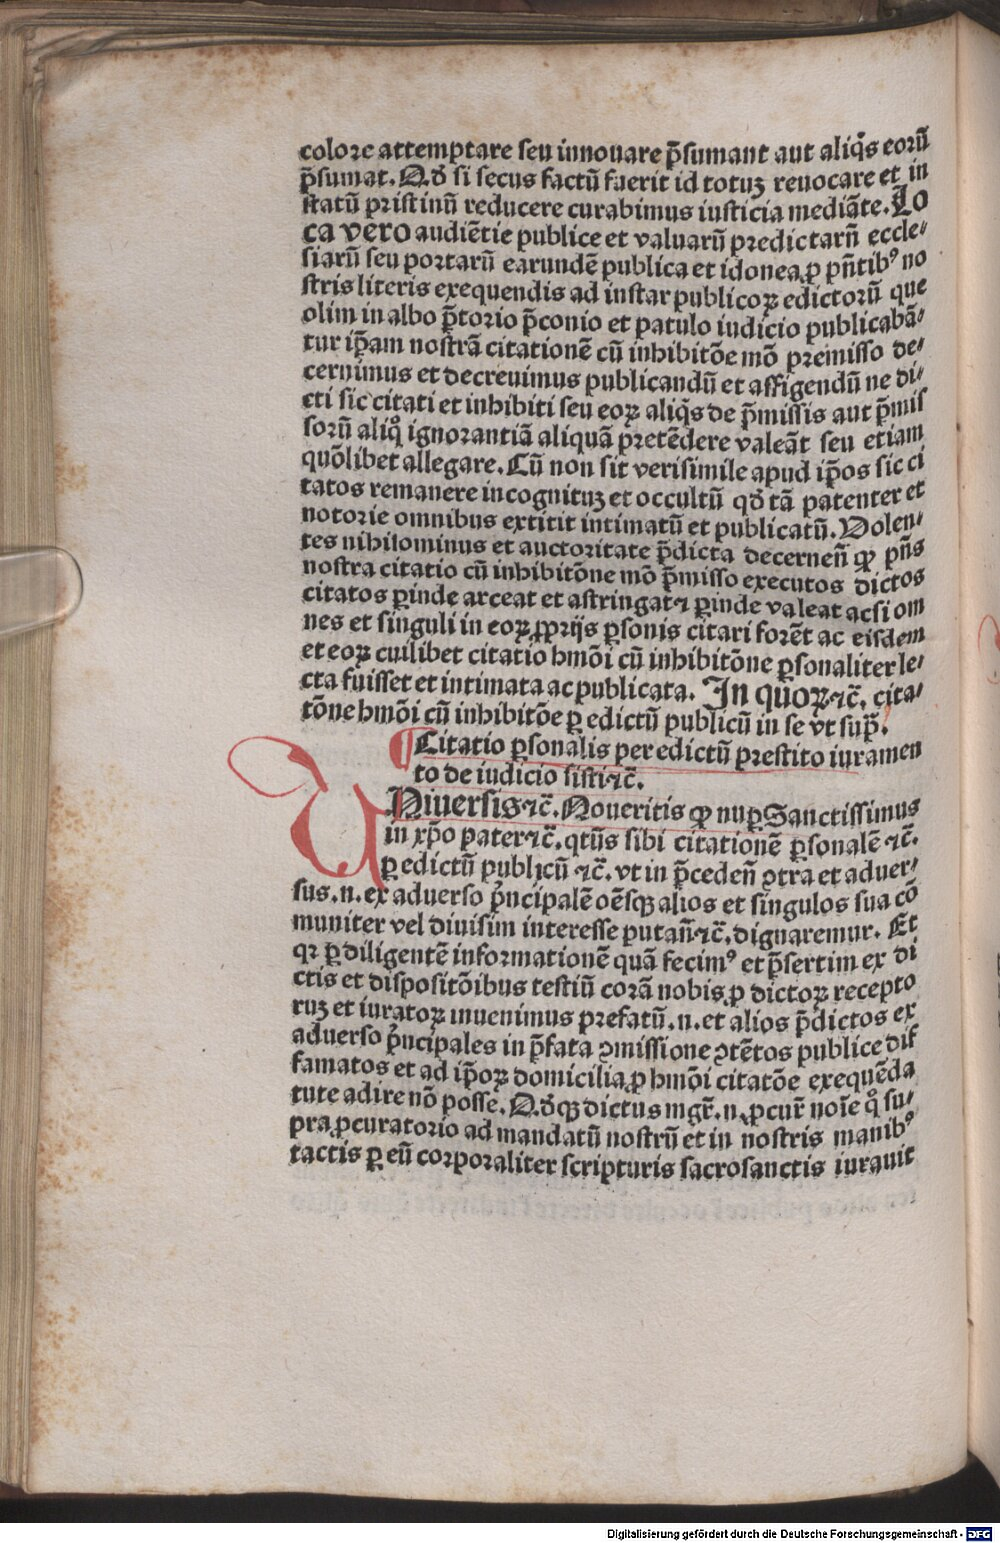 colore attemptare seu innouare p̄sumant aut aliq̄s eorū
p̄sumat. Q.ď si secus factū fuerit id totuꝫ reuocare et in
statū pristinū reducere curabimus iusticia mediāte. Lo
ca vero audiētie publice et valuarū predictarū eccle⸗
siarū seu portarū earundē publica et idonea ꝓ pn̄tibꝰ no
stris literis exequendis ad instar publicoꝝ edictorū que
olim in albo p̄torio p̄conio et patulo iudicio publicabā⸗
tur ip̄am nostrā citationē cū inhibitōe mō premisso de⸗
cernimus et decreuimus publicandū et affigendū ne di⸗
cti sic citati et inhibiti seu eoꝝ aliq̄s de p̄missis aut p̄mis
sorū aliqͦ ignorantiā aliquā pretēdere valeāt seu etiam
quōlibet allegare. Cū non sit verisimile apud ip̄os sic ci
tatos remanere incognituꝫ et occultū qď tā patenter et
notorie omnibus extitit intimatū et publicatū. Volen⸗
tes nihilominus et auctoritate p̄dicta decernen̄ ꝙ pn̄s
nostra citatio cū inhibitōne mō p̄misso executos dictos
citatos ꝑinde arceat et astringat ⁊ ꝑinde valeat acsi om
nes et singuli in eoꝝ ꝓprijs ꝑsonis citari forēt ac eisdem
et eoꝝ cuilibet citatio hmōi cū inhibitōne ꝑsonaliter le⸗
cta fuisset et intimata ac publicata. In quoꝝ ⁊c̄. cita⸗
tōne hmōi cū inhibitōe ꝑ edictū publicū in se vt sup̄.
¶ Citatio ꝑsonalis per edictū prestito iuramen
to de iudicio sisti ⁊c̄.
UNiuersis ⁊c̄. Noueritis ꝙ nuꝑ Sanctissimus
in xp̄o pater ⁊c̄. qtn̄s sibi citationē ꝑsonalē ⁊c̄.
ꝑ edictū publicū ⁊c̄. vt in p̄ceden̄ ↄtra et aduer⸗
sus .n. ex aduerso pͥncipalē oēsqꝫ alios et singulos sua cō
muniter vel diuisim interesse putan̄ ⁊c̄. dignaremur. Et
qꝛ ꝑ diligentē informationē quā fecimꝰ et p̄sertim ex di
ctis et dispositōibus testiū corā nobis ꝓ dictoꝝ recepto
ruꝫ et iuratoꝝ inuenimus prefatū .n. et alios p̄dictos ex
aduerso pͥncipales in p̄fata ↄmissione ↄtētos publice dif
famatos et ad ip̄oꝝ domicilia ꝓ hmōi citatōe exequēda
tute adire nō posse. Q.ďqꝫ dictus mgr̄. n. ꝓcur̄ noīe qͦ su⸗
pra ꝓcuratorio ad mandatū nostrū et in nostris manibꝰ
tactis ꝑ eū corporaliter scripturis sacrosanctis iurauit
Digitalisierung gefördert durch die Deutsche Forschungsgemeinschaft - DFG